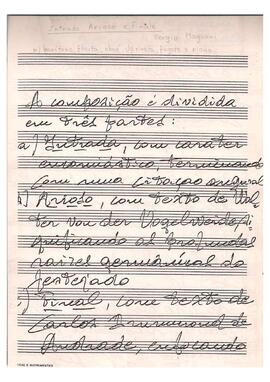 Intrada Arioso e Finale
Sergio Magnani
p/ barítono, flauta, oboé, clarineta, fagote e piano
A composição é dividida
em três partes:
a) Intrada, com caráter
encomiástico, terminando
com uma citação
b) Arioso, com texto de Wal-
ter von der Vogelweide, si-
gnificando as profundas
raízes germânicas do
festejado
c) Final, com texto de
Carlos Drummond de
Andrade, enfocando